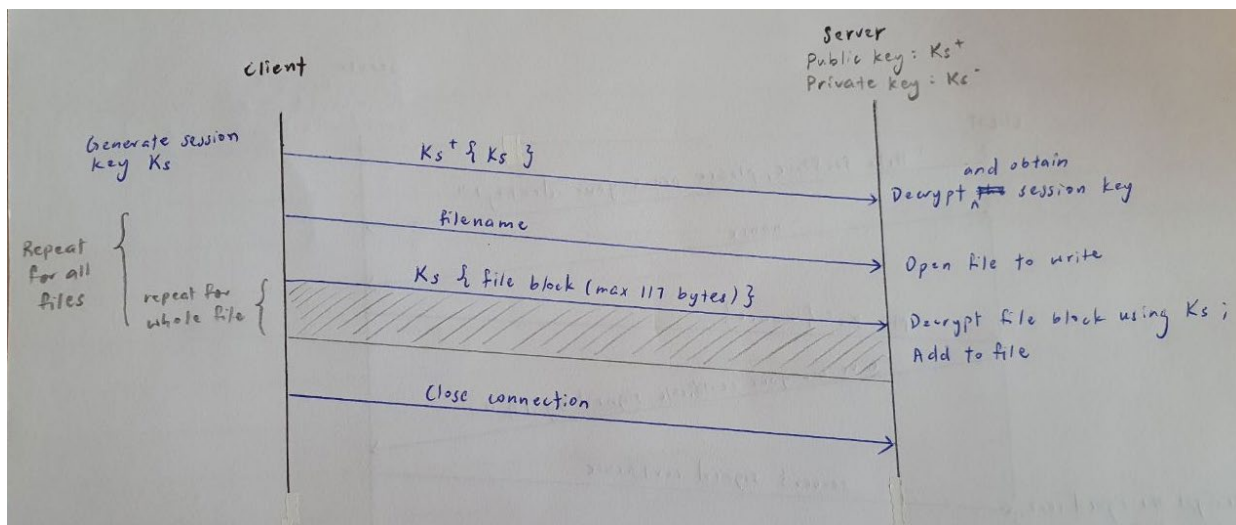 Client
Server
Public key: Ks+
Private key: Ks-
Generate session
key Ks
Ks+ { Ks }
and obtain
Decrypt ^ session key
filename
Open file to write
Repeat
for all
files
repeat for
whole file
Ks { file block (max 117 bytes) }
Decrypt file block using Ks ;
Add to file
Close connection